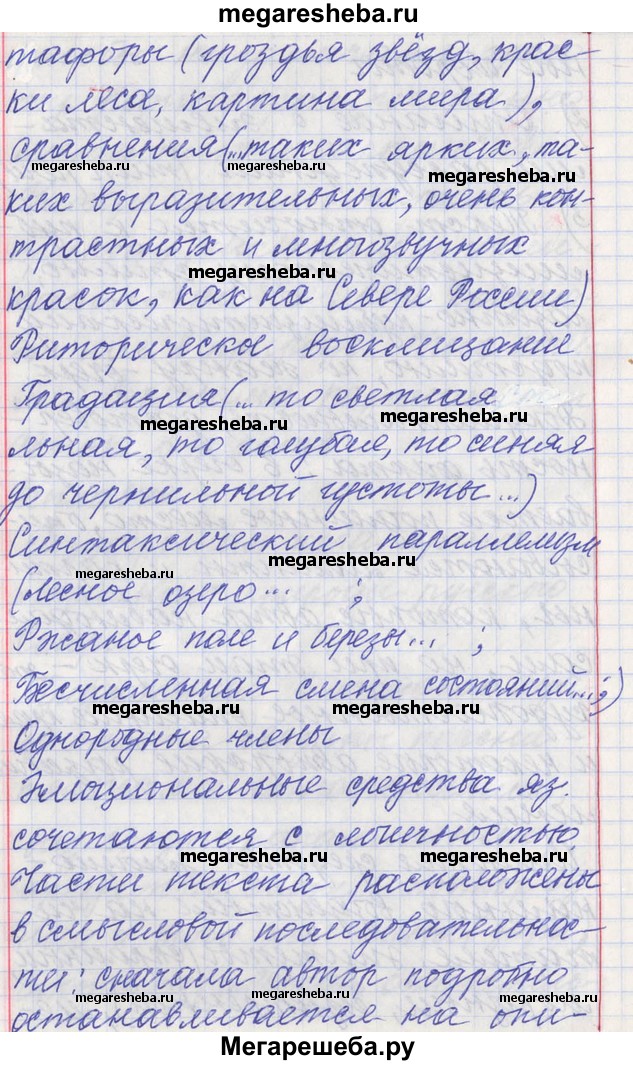 megaresheba.ru
тафоры (гроздья звёзд, крас-
ки леса, картина мира),
сравнения (... таких ярких, та-
megaresheba.ru megaresheba.ru
ких выразительных, очень кон-
трастных и многозвучных
megaresheba.ru
красок, как на Севере России)
Риторическое восклицание
Градация (... то светлая
megaresheba.ru megaresheba.ru
льная, то голубая, то синяя
до чернильной густоты...)
Синтаксический параллелизм
megaresheba.ru megaresheba.ru
(лесное озеро... ;
Ржаное поле и березы... ;
Бесчисленная смена состояний...;)
megaresheba.ru megaresheba.ru
Однородные члены
Эмоциональные средства яз.
сочетаются с логичностью
megaresheba.ru megaresheba.ru
Части текста расположены
в смысловой последовательнос-
ти: сначала автор подробно
megaresheba.ru megaresheba.ru megaresheba.ru
останавливается на опи-
Мегарешеба.ру